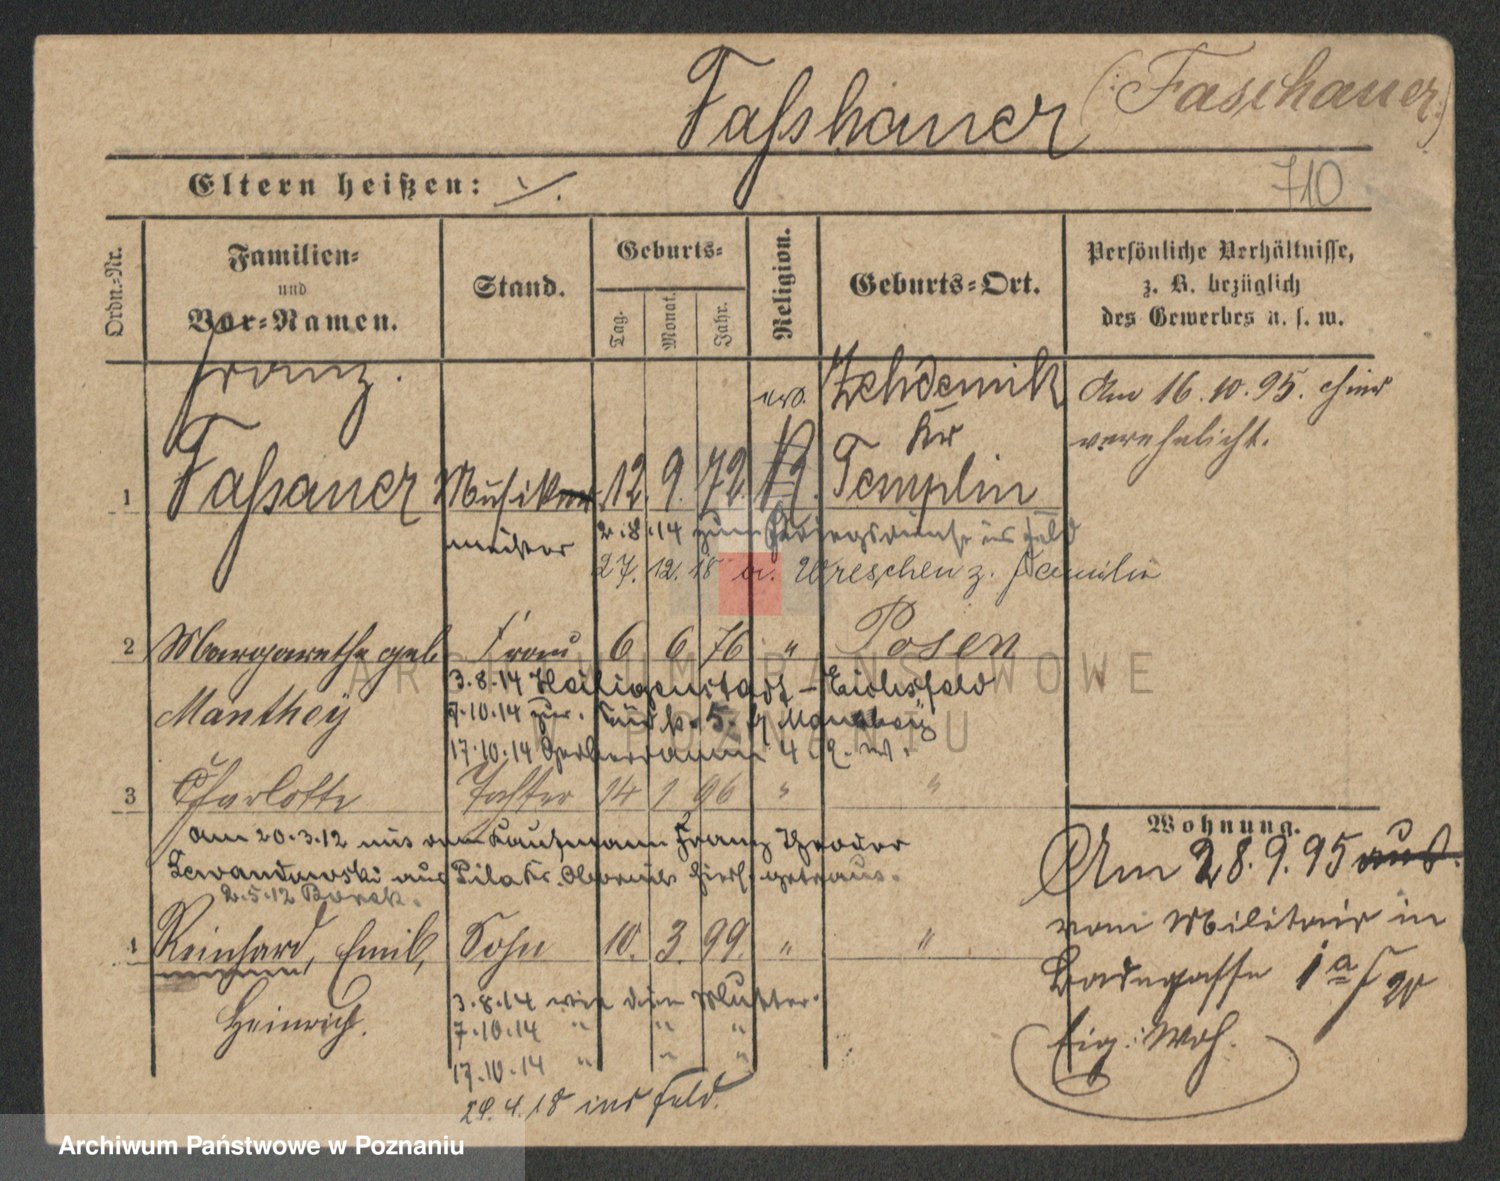 Faßhauer (: Faschauer :)
Eltern heißen: ./.
710
Ordn.-Nr.
Familien-
und
Vor-Namen.
Stand.
Geburts-
Tag.
Monat.
Jahr.
Religion.
Geburts-Ort.
Persönliche Verhältnisse,
z. B. bezüglich
des Gewerbes u. s. w.
Franz.
ev. Zehdenik
Am 16.10.95. hier
verehelicht.
Kr
1 Faßauer Musik 12. 9. 72. Templin
meister
2.8.14 zum Kriegsdienst ins Feld
27.12.18 a. Wreschen z. Familie
2 Margarethe geb Frau 6 6 76 " Posen
Manthey
3.8.14 Heiligenstadt - Eichsfeld
7.10.14 zur. 5. Manthey
17.10.14 Gerberdamm 4
3 Charlotte Tochter 14 1 96 " "
am 20.3.12 mit dem Kaufmann Franz Theodor
Lewandowski aus Pila Kr. Obornik hier getraut.
2.5.12 Borek.
4 Reinhard, Emil, Sohn 10. 3. 99. " "
Heinrich.
3.8.14 wie die Mutter.
7.10.14 " " "
17.10.14 " " "
29.4.18 ins Feld.
Wohnung.
Am 28.9.95 aus
vom Militair in
Badegasse 1a
Eig. Woh.
ARCHIWUM PAŃSTWOWE
W POZNANIU
Archiwum Państwowe w Poznaniu